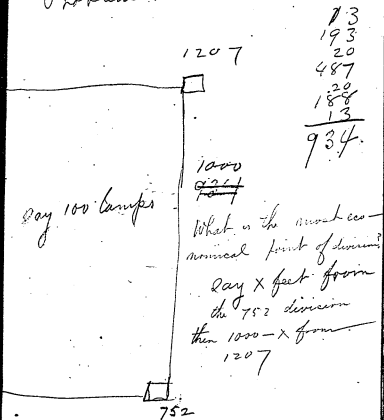 13
193
20
487
20
188
13
934
1207
1000
Say 100 lamps
What is the most eco-
nomical point of division?
Say X feet from
the 752 division
then 1000 - X from
1207
752